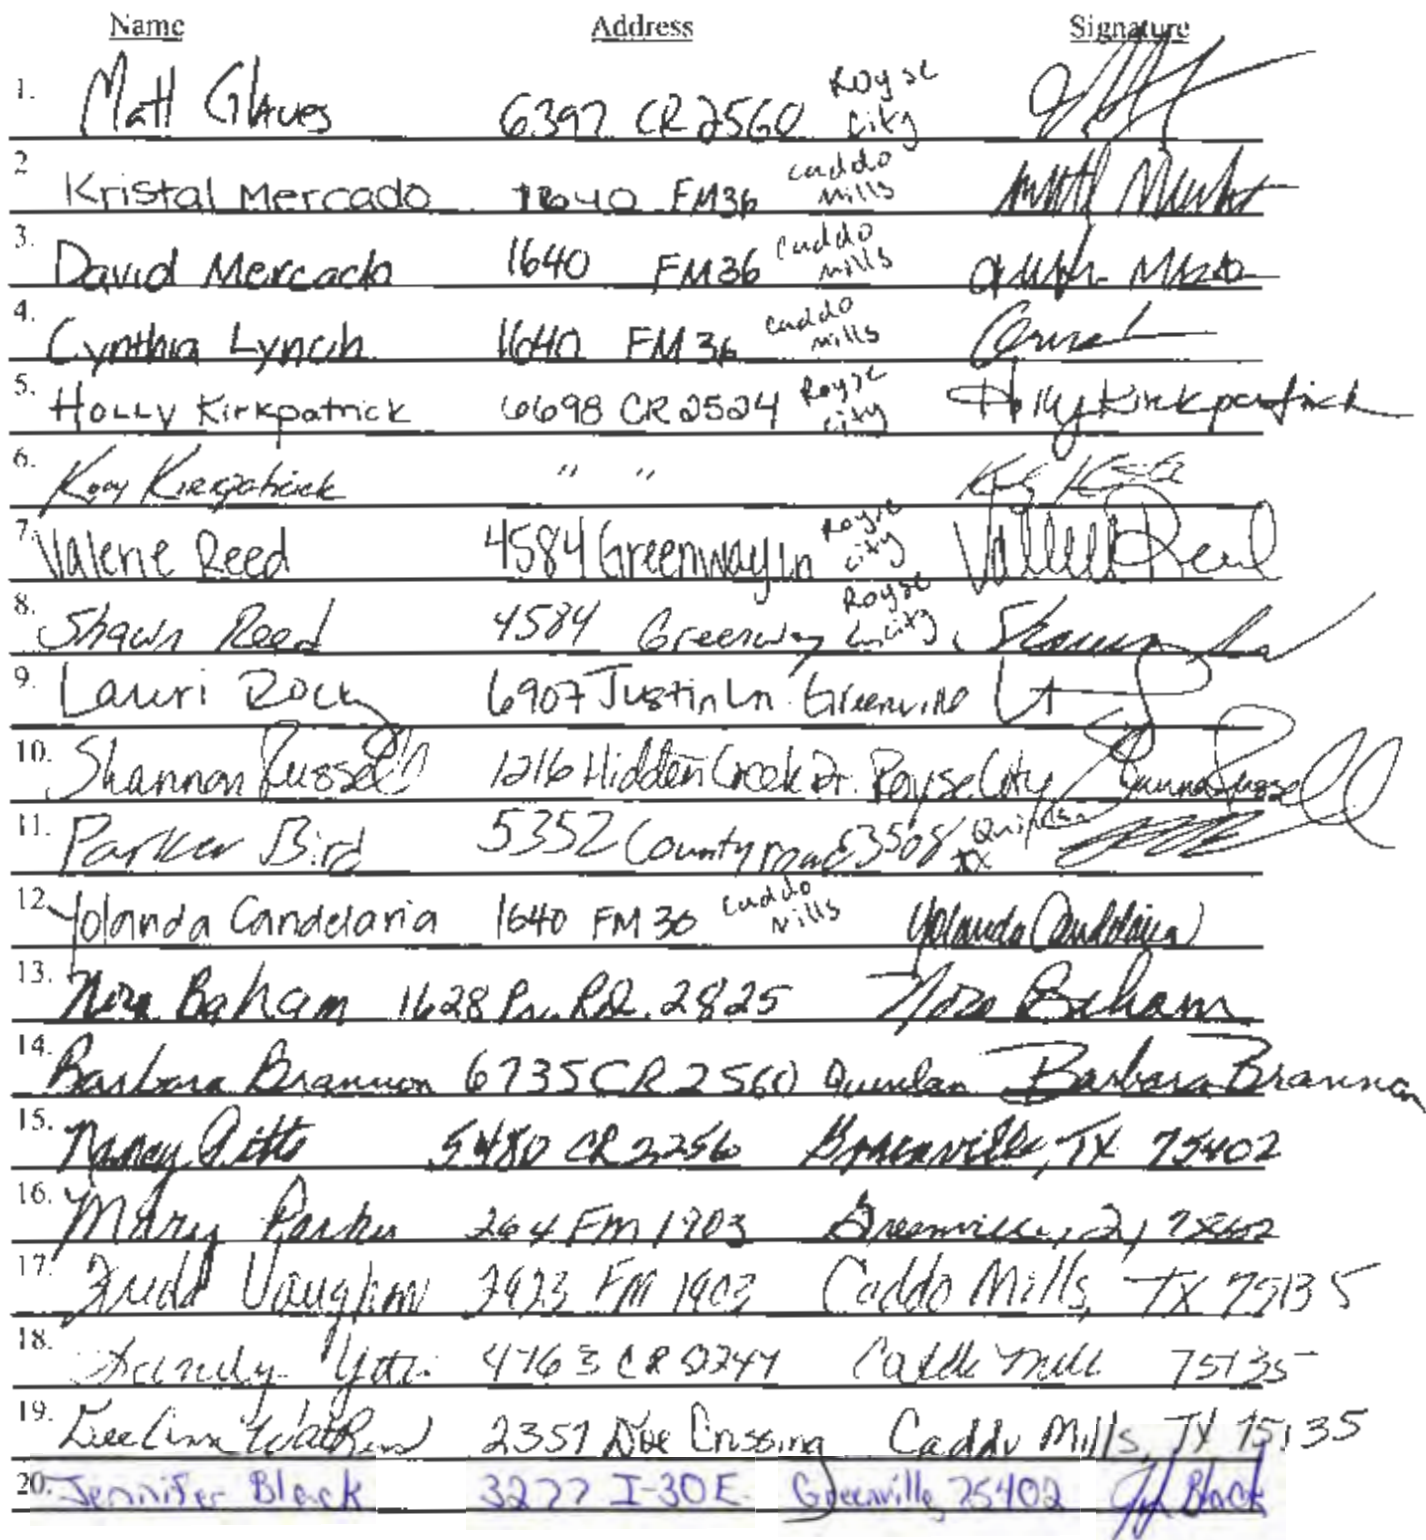 Name Address Signature
1. Matt Glaves 6397 CR 2560 Royse City
2 Kristal Mercado 1640 FM36 Caddo Mills
3. David Mercado 1640 FM36 Caddo Mills
4. Cynthia Lynch 1640 FM 36 Caddo Mills
5. Holly Kirkpatrick 6698 CR 2524 Royse City Holly Kirkpatrick
6. Kory Kirkpatrick " "
7. Valerie Reed 4584 Greenway Ln Royse City Valerie Reed
8. Shawn Reed 4584 Greenway Ln Royse City Shawn
9. Lauri Rock 6907 Justin Ln Greenville
10. Shannon Russell 1216 Hidden Creek Dr. Royse City Shannon Russell
11. Parker Bird 5352 County road 3508 Quinlan TX
12. Yolanda Candelaria 1640 FM 36 Caddo Mills Yolanda Candelaria
13. Nora Baham 1628 Pr. Rd. 2825 Nora Baham
14. Barbara Brannon 6735 CR 2560 Quinlan Barbara Brannon
15. Nancy Pitts 5480 CR 2256 Greenville, TX 75402
16. Mary Parker 264 FM 1903 Greenville, 75402
17. Vaughn 2923 FM 1903 Caddo Mills, TX 75135
18. 4763 CR 2247 Caddo Mill 75135
19. DeeAnn 2357 Doe Crossing Caddo Mills, TX 75135
20. Jennifer Black 3277 I-30 E Greenville, 75402 Black